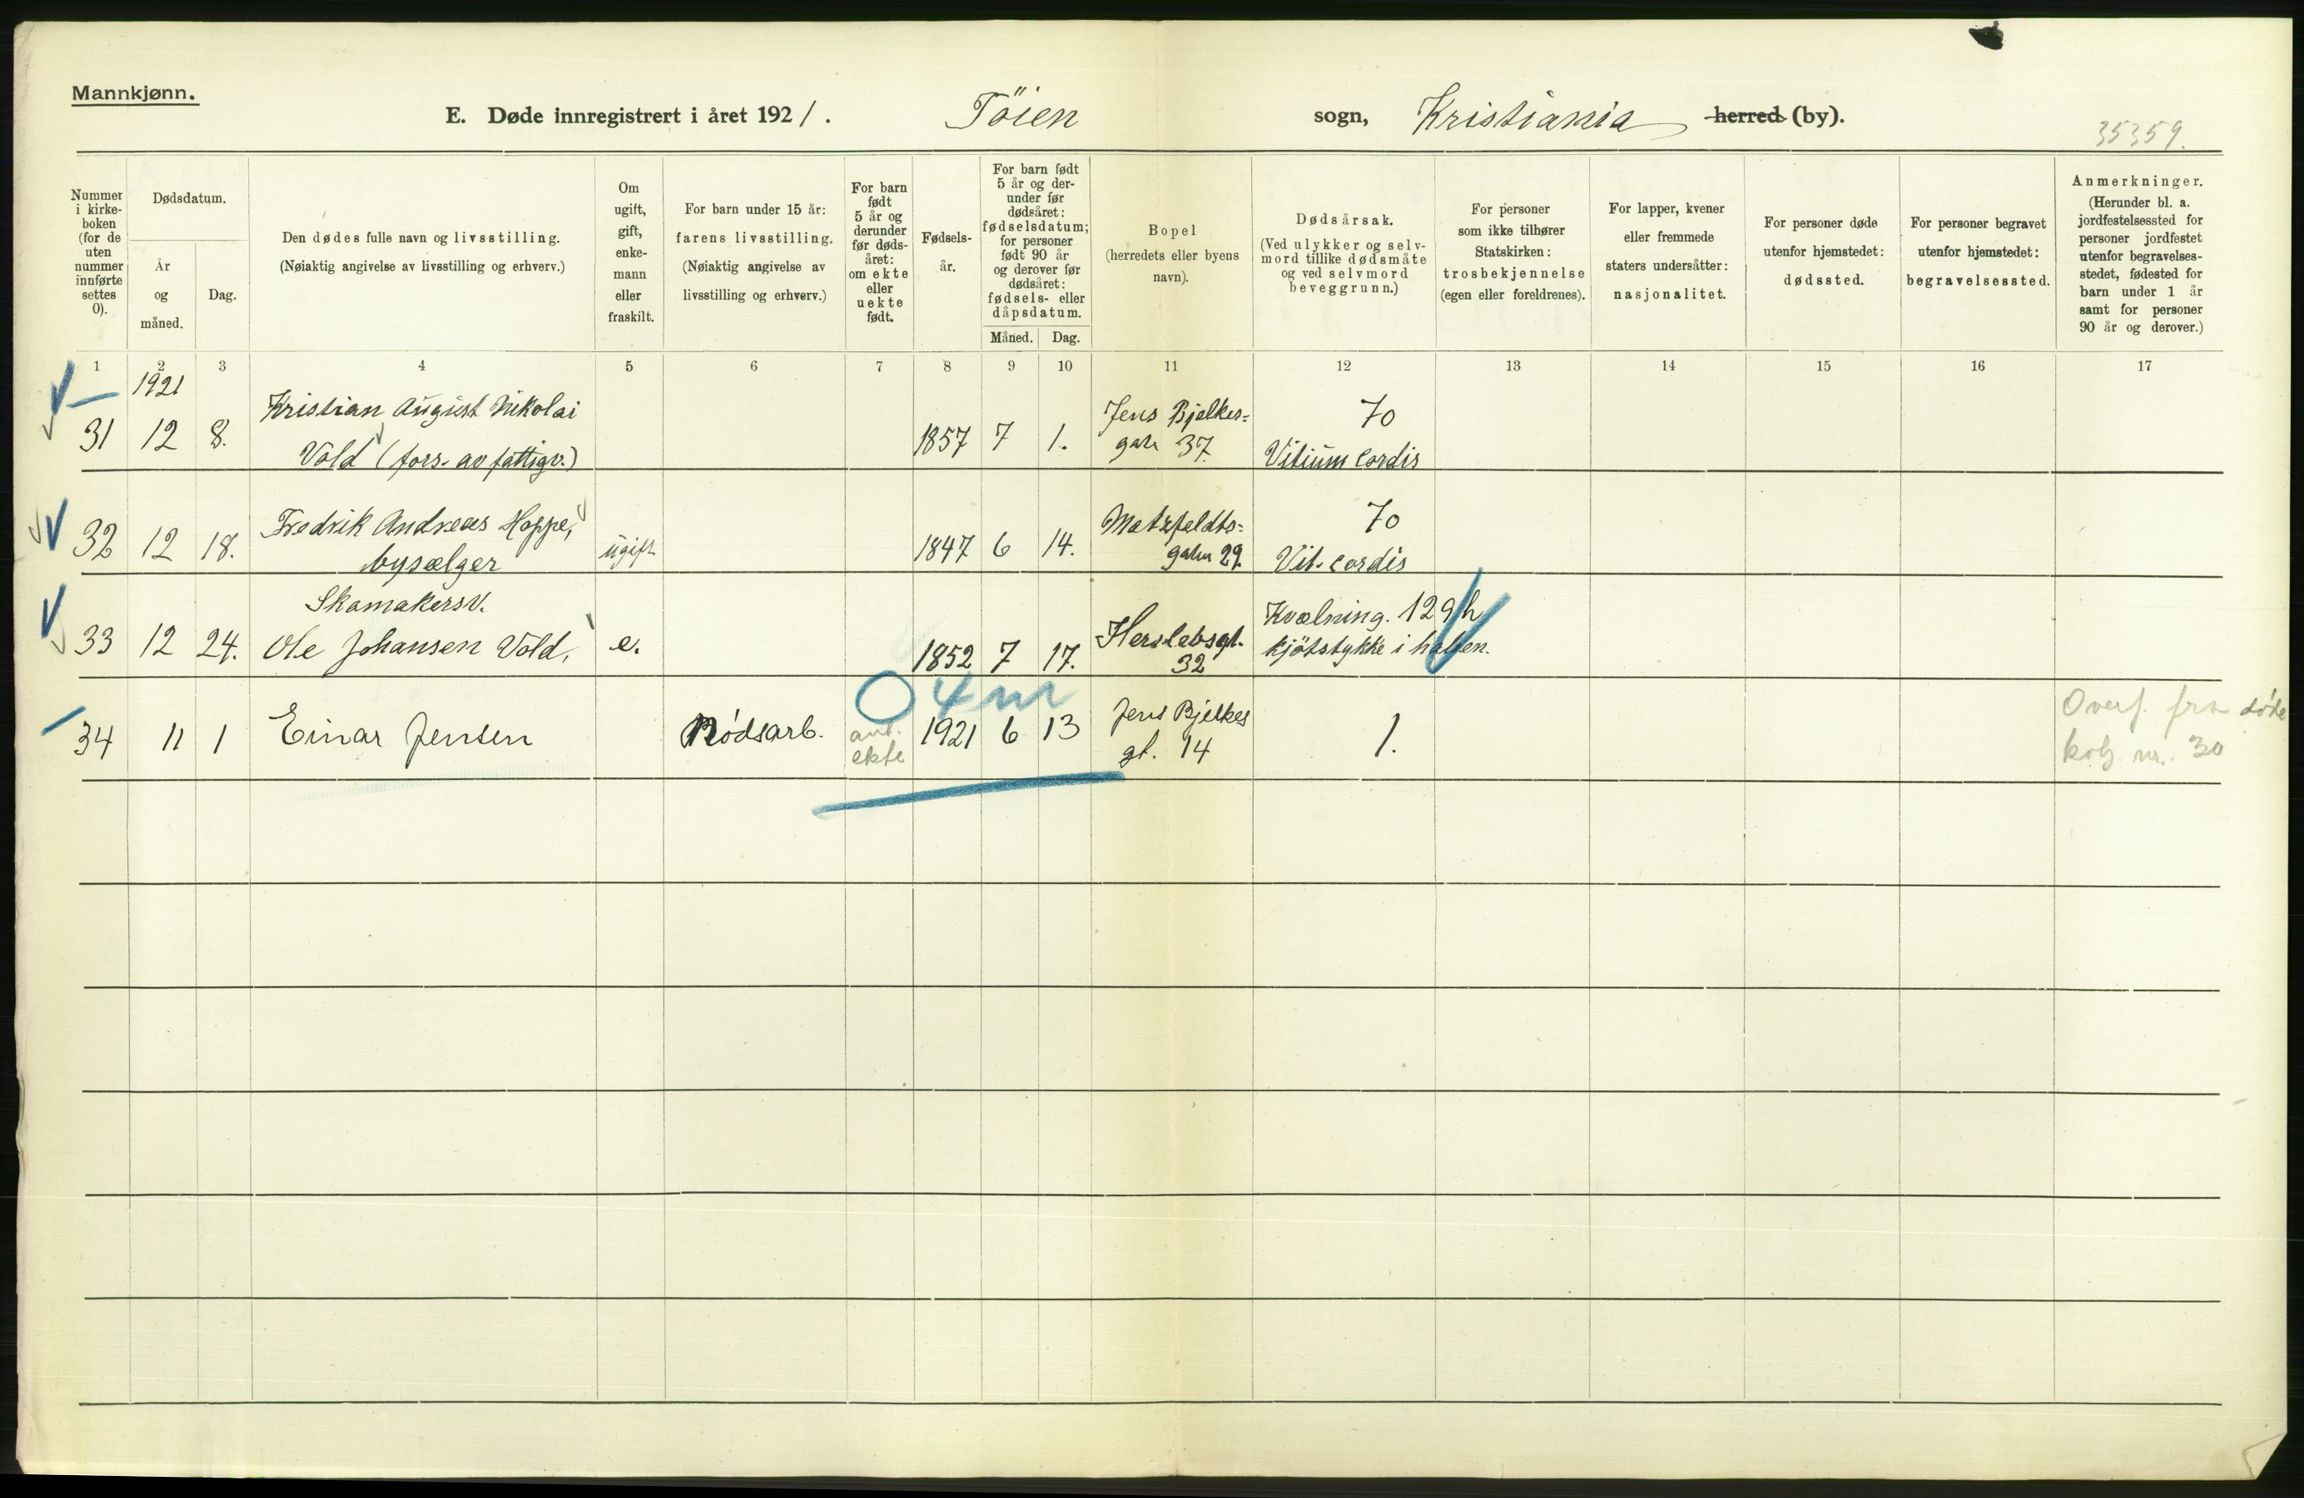 Mannkjønn.
E. Døde innregistrert i året 1921. Töien sogn, Kristiania herred (by).
35359.
Nummer i kirke-boken (for de uten nummer innførte settes 0).
Dødsdatum.
År og måned.
Dag.
Den dødes fulle navn og livsstilling.
(Nøiaktig angivelse av livsstilling og erhverv.)
Om ugift, gift, enke-mann eller fraskilt.
For barn under 15 år:
farens livsstilling.
(Nøiaktig angivelse av
livsstilling og erhverv.)
For barn født 5 år og derunder før døds-året: om ekte eller uekte født.
Fødsels-
år.
For barn født 5 år og der-under før dødsåret: fødselsdatum; for personer født 90 år og derover før dødsåret: fødsels- eller dåpsdatum.
Måned.
Dag.
Bopel
(herredets eller byens
navn).
Dødsårsak.
(Ved ulykker og selv-
mord tillike dødsmåte
og ved selvmord
beveggrunn.)
For personer
som ikke tilhører
Statskirken:
trosbekjennelse
(egen eller foreldrenes).
For lapper, kvener
eller fremmede
staters undersåtter:
nasjonalitet.
For personer døde
utenfor hjemstedet:
dødssted.
For personer begravet
utenfor hjemstedet:
begravelsessted.
Anmerkninger.
(Herunder bl. a.
jordfestelsessted for
personer jordfestet
utenfor begravelses-
stedet, fødested for
barn under 1 år
samt for personer
90 år og derover.)
1 2 3 4 5 6 7 8 9 10 11 12 13 14 15 16 17
1921
31 12 8. Kristian August Nikolai
Vold (fors. av fattigv.) 1857 7 1. Jens Bjelkes=
gate 37. 70
Vitium cordis
32 12 18. Fredrik Andreas Hoppe,
bysælger ugift 1847 6 14. Motzfeldts=
gaten 29. 70
Vit. cordis
Skomakersv.
33 12 24. Ole Johansen Vold, e. 1852 7 17. Herslebsgt.
32 Kvælning. 129h
kjötstykke i halsen.
O 4 m
34 11 1 Einar Jensen Nödsarb. ant.
ekte 1921 6 13 Jens Bjelkes
gt. 14 1. Overf. fra döde
nr. 30